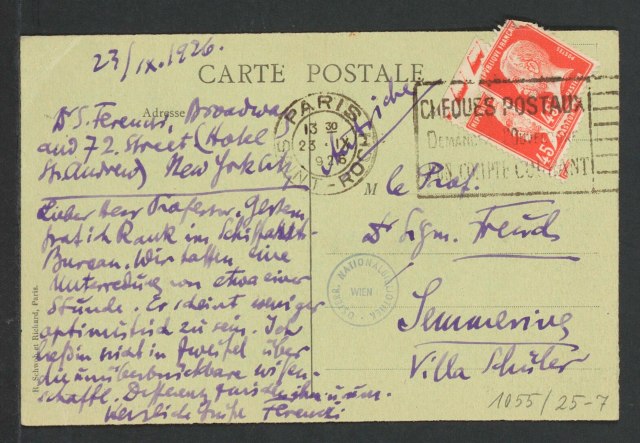 23/IX.1926.
CARTE POSTALE
Adresse
Dr S. Ferenczi, Broadway
and 72. Street (Hotel
St. Andrew) New York City
Lieber Herr Professor, Gestern
traf ich Rank im Schiffahrts-
Bureau. Wir hatten eine
Unterredung von etwa einer
Stunde. Er scheint weniger
optimistisch zu sein. Ich
ließ ihn nicht im Zweifel über
die unüberbrückbare wissen-
schaftl. Differenz zwischen ihm u. uns.
Herzliche Grüße Ferenczi
R. Schwegel Richard, Paris.
PARIS
13 30
23 IX
1926
ST ROCH
CHEQUES POSTAUX
COMPTE COURANT
REPUBLIQUE FRANÇAISE
POSTES
45c
Autriche
M
le Prof.
Dr Sigm. Freud
Semmering
Villa Schüler
NATIONALBIBLIOTHEK
WIEN
1055/25-7